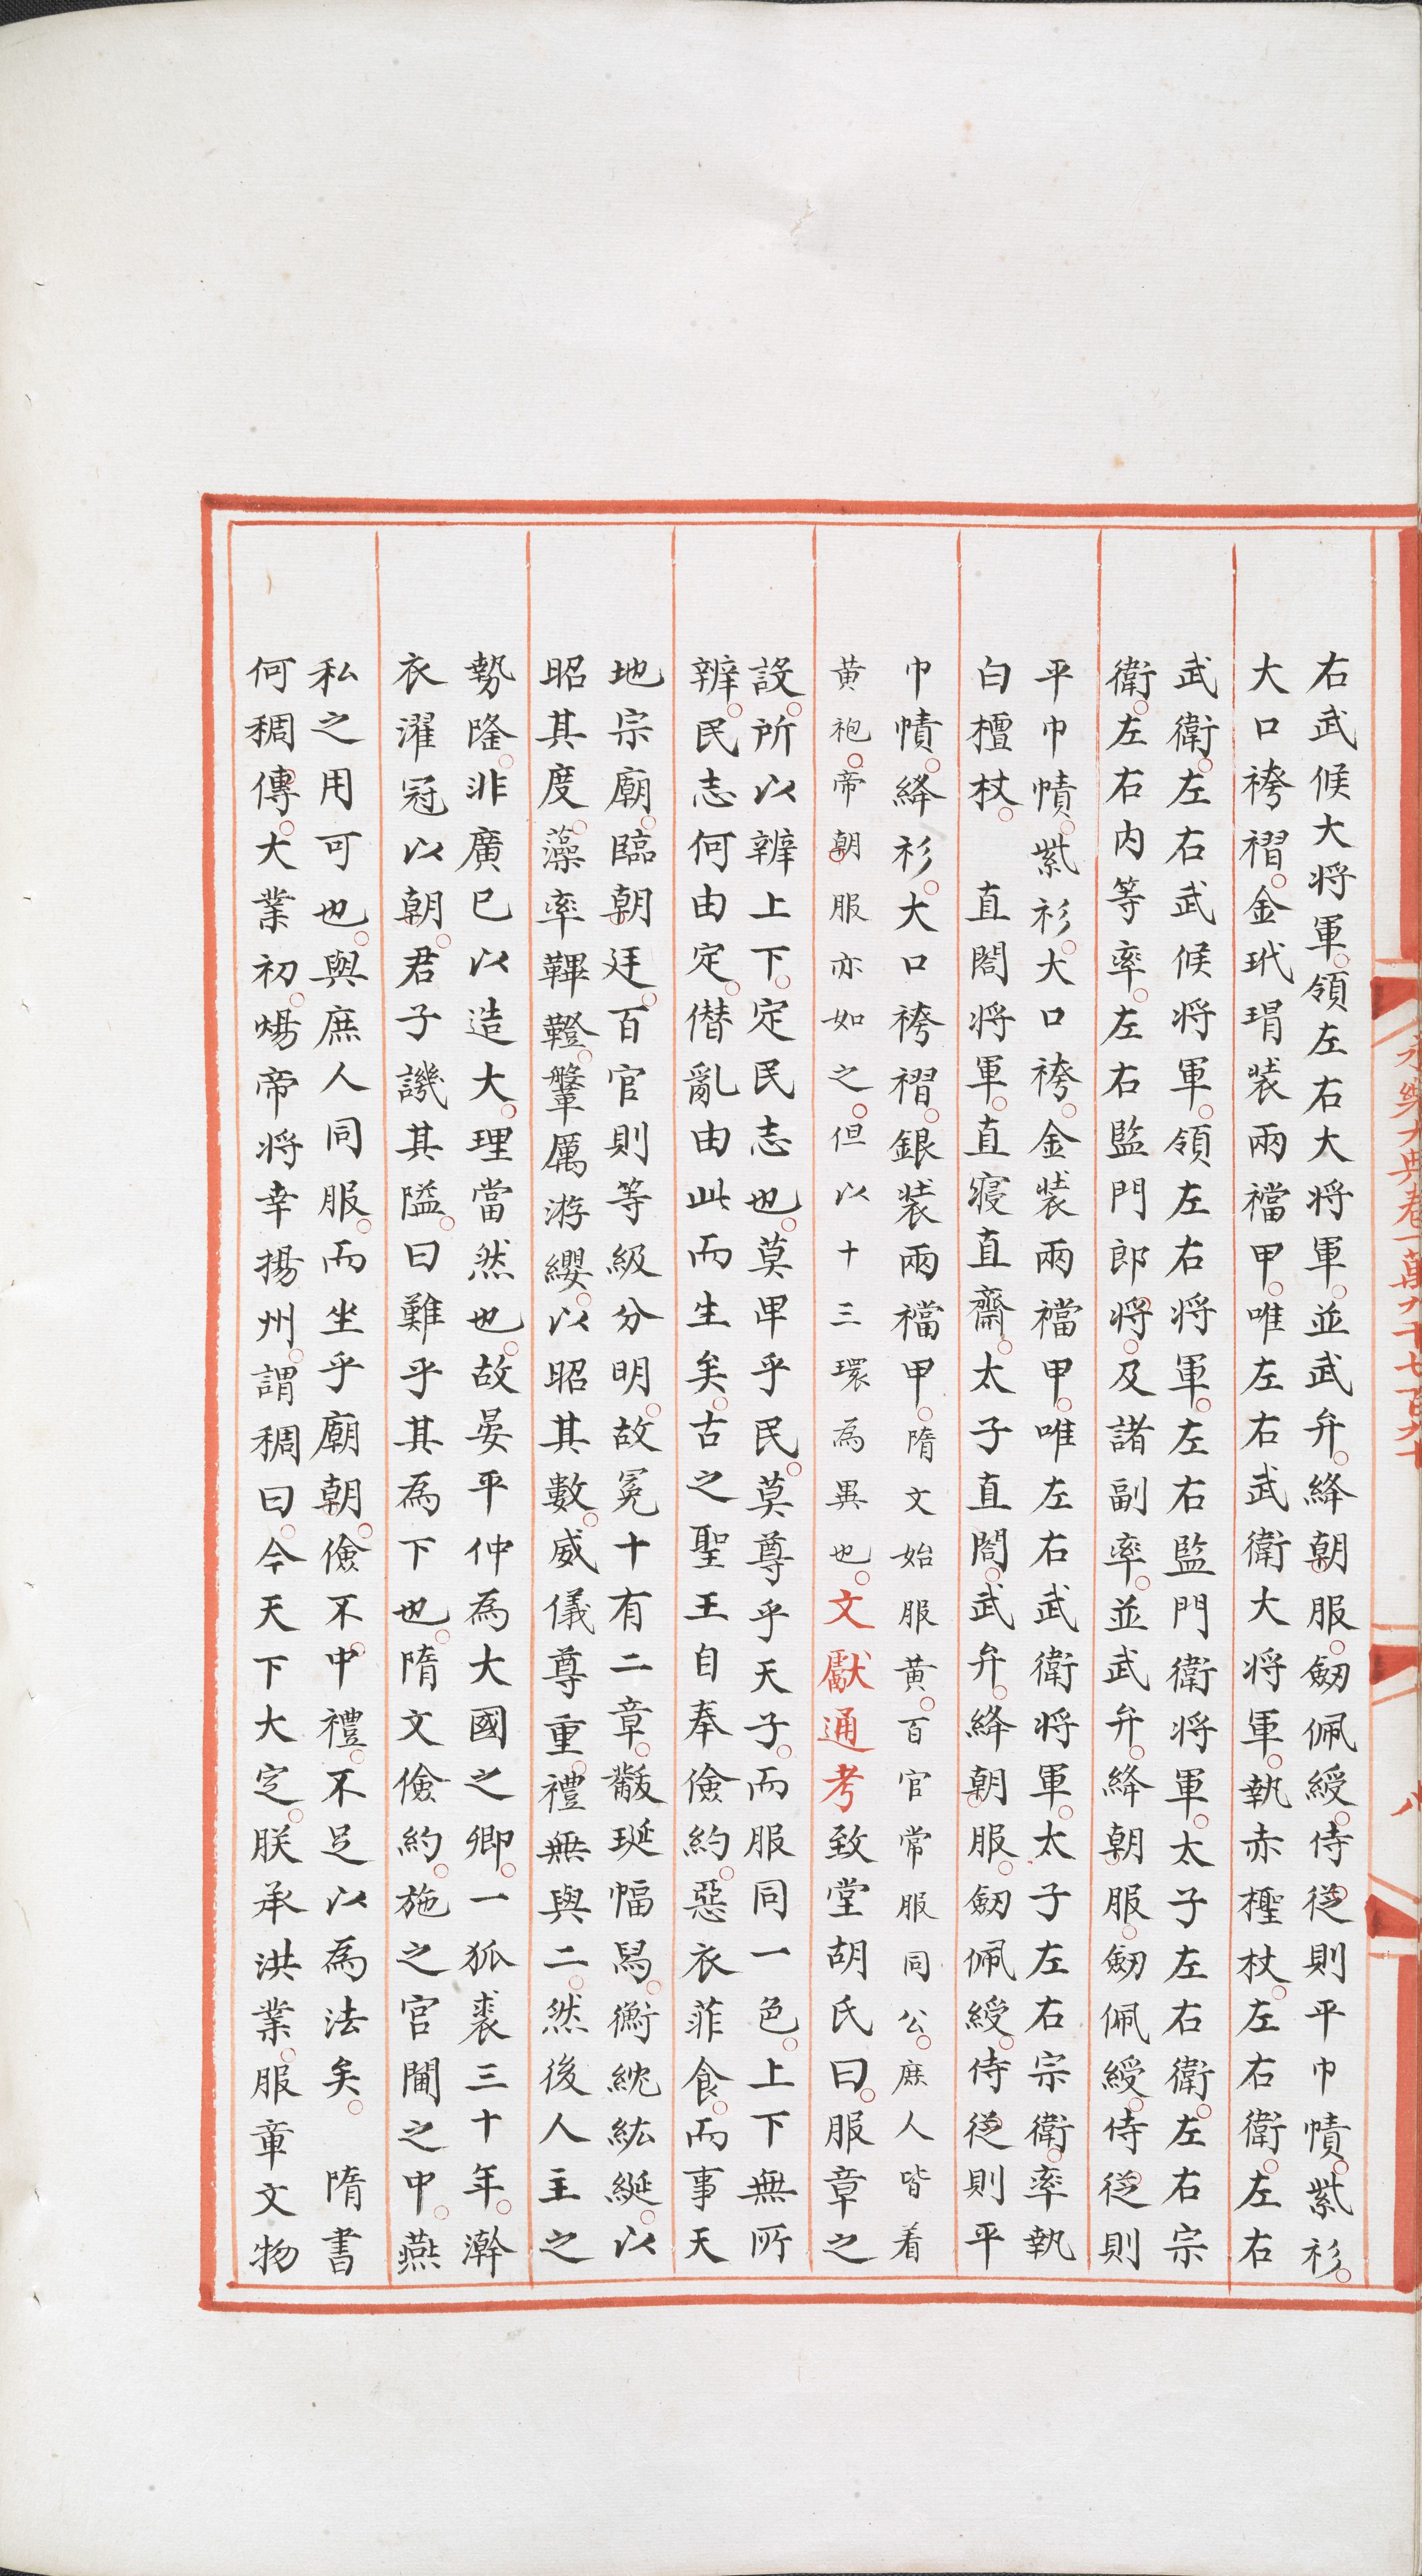 永樂大典卷一萬九千七百九十
八
右武候大将軍領左右大将軍並武弁絳朝服劒佩綬侍從則平巾幘紫衫
大口袴褶金玳瑁装兩襠甲唯左右武衛大将軍執赤檉杖左右衛左右
武衛左右武候将軍領左右将軍左右監門衛将軍太子左右衛左右宗
衛左右内等率左右監門郎将及諸副率並武弁絳朝服劒佩綬侍從則
平巾幘紫衫大口袴金装兩襠甲唯左右武衛将軍太子左右宗衛率執
白檀杖 直閤将軍直寢直齋太子直閤武弁絳朝服劒佩綬侍從則平
巾幘絳衫大口袴褶銀装兩襠甲隋文始服黄百官常服同公庶人皆着
黄袍帝朝服亦如之但以十三環為異也文獻通考致堂胡氏曰服章之
設所以辨上下定民志也莫甲乎民莫尊乎天子而服同一色上下無所
辨民志何由定僭亂由此而生矣古之聖王自奉儉約惡衣菲食而事天
地宗廟臨朝廷百官則等級分明故冕十有二章黻珽幅舄衡紞紘綖以
昭其度藻率鞸鞛鞶厲游纓以昭其數威儀尊重禮無與二然後人主之
勢隆非廣已以造大理當然也故晏平仲為大國之卿一狐裘三十年澣
衣濯冠以朝君子譏其隘曰難乎其為下也隋文儉約施之宫閫之中燕
私之用可也與庶人同服而坐乎廟朝儉不中禮不足以為法矣 隋書
何稠傳大業初煬帝将幸揚州謂稠曰今天下大定朕承洪業服章文物